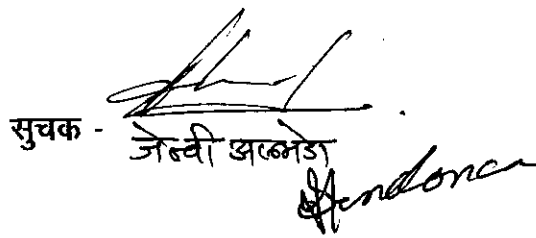 सुचक - जेन्वी अल्मेडा
Mendonca